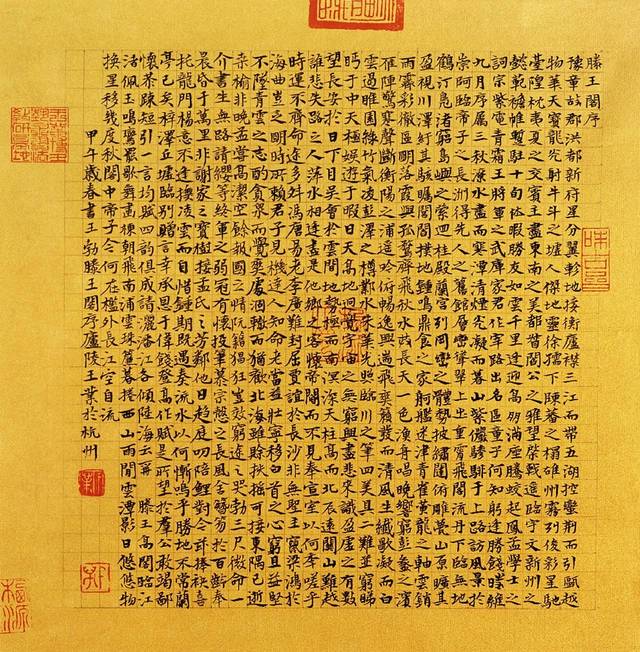 滕王閣序
豫章故郡洪都新府星分翼軫地接衡廬襟三江而帶五湖控蠻荊而引甌越
物華天寶龍光射牛斗之墟人傑地靈徐孺下陳蕃之榻雄州霧列俊彩星馳
臺隍枕夷夏之交賓主盡東南之美都督閻公之雅望棨戟遙臨宇文新州之
懿範襜帷暫駐十旬休暇勝友如雲千里逢迎高朋滿座騰蛟起鳳孟學士之
詞宗紫電青霜王將軍之武庫家君作宰路出名區童子何知躬逢勝餞時維
九月序屬三秋潦水盡而寒潭清煙光凝而暮山紫儼驂騑于上路訪風景於
崇阿臨帝子之長洲得仙人之舊館層巒聳翠上出重霄飛閣流丹下臨無地
鶴汀鳧渚窮島嶼之縈迴桂殿蘭宮列岡巒之體勢披繡闥俯雕甍山原曠其
盈視川澤紆其駭矚閭閻撲地鐘鳴鼎食之家舸艦迷津青雀黃龍之軸雲銷
雨霽彩徹區明落霞與孤鶩齊飛秋水共長天一色漁舟唱晚響窮彭蠡之濱
雁陣驚寒聲斷衡陽之浦遙吟俯暢逸興遄飛爽籟發而清風生纖歌凝而白
雲遏睢園綠竹氣凌彭澤之樽鄴水朱華光照臨川之筆四美具二難並窮睇
眄于中天極娛遊于暇日天高地迥覺宇宙之無窮興盡悲來識盈虛之有數
望長安於日下目吳會於雲間地勢極而南溟深天柱高而北辰遠關山難越
誰悲失路之人萍水相逢盡是他鄉之客懷帝閽而不見奉宣室以何年嗟乎
時運不齊命途多舛馮唐易老李廣難封屈賈誼於長沙非無聖主竄梁鴻於
海曲豈乏明時所賴君子見機達人知命老當益壯寧移白首之心窮且益堅
不墜青雲之志酌貪泉而覺爽處涸轍而猶歡北海雖賒扶搖可接東隅已逝
桑榆非晚孟嘗高潔空餘報國之情阮籍猖狂豈效窮途之哭勃三尺微命一
介書生無路請纓等終軍之弱冠有懷投筆慕宗愨之長風舍簪笏於百齡奉
晨昏于萬里非謝家之寶樹接孟氏之芳鄰他日趨庭叨陪鯉對今茲捧袂喜
托龍門楊意不逢撫凌雲而自惜鍾期既遇奏流水以何慚嗚乎勝地不常蘭
亭已矣梓澤丘墟臨別贈言幸承恩于偉餞登高作賦是所望於羣公敢竭鄙
懷恭疎短引一言均賦四韻俱成請灑潘江各傾陸海云爾 滕王高閣臨江
渚佩玉鳴鸞罷歌舞畫棟朝飛南浦雲珠簾暮捲西山雨閒雲潭影日悠悠物
換星移幾度秋閣中帝子今何在檻外長江空自流
甲午歲春書王勃滕王閣序廬陵王葉於杭州